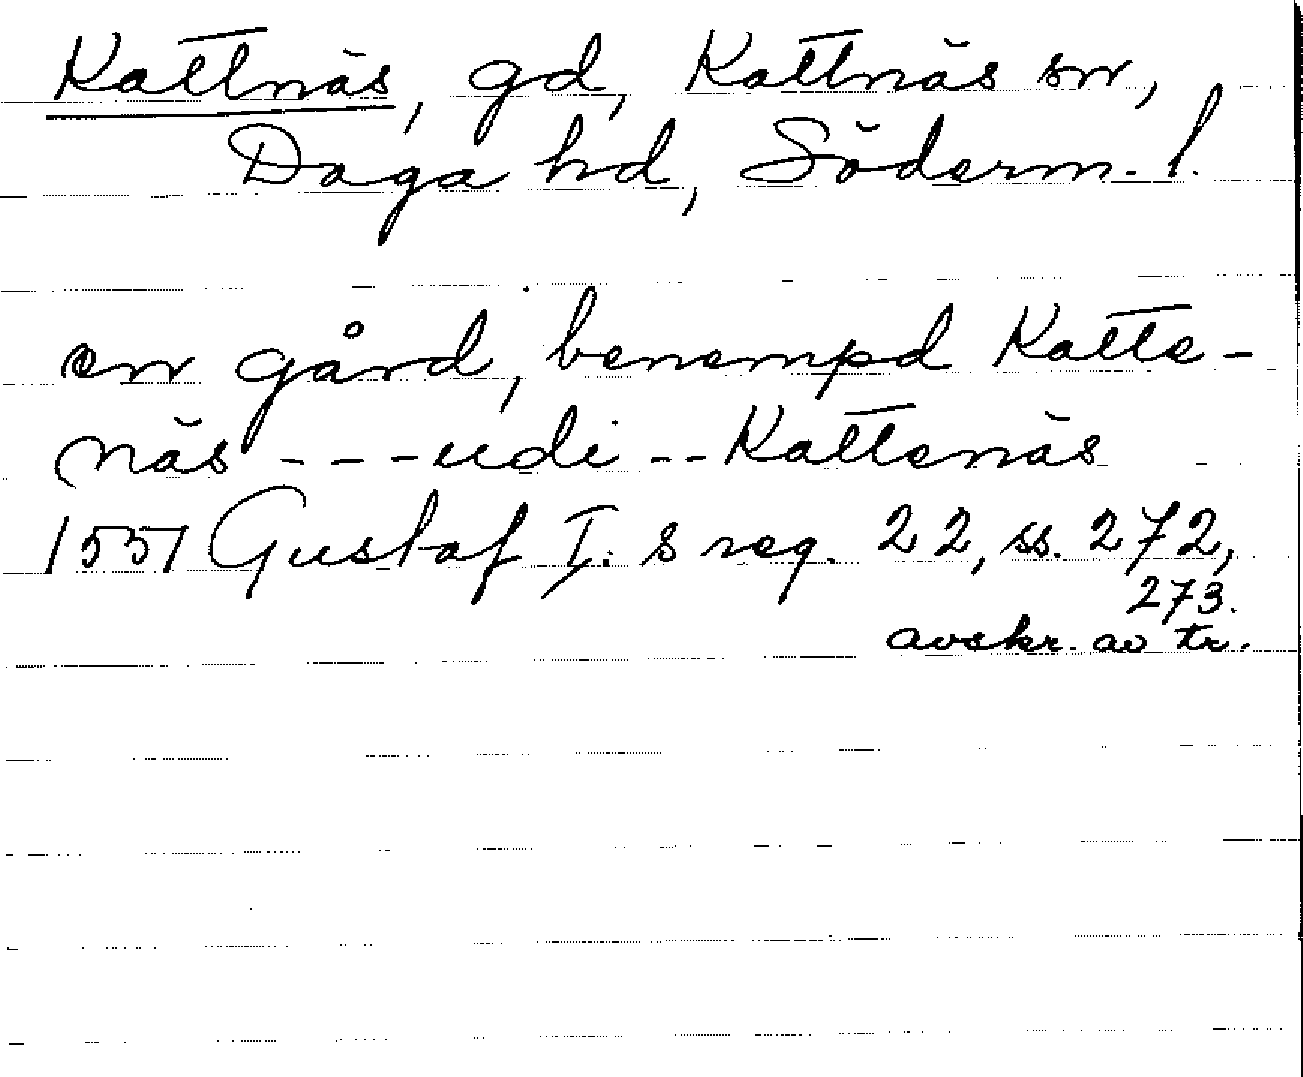 Kattnäs, gd, Kattnäs sn,
Daga hd, Söderm. l.
en gård, benempd Katte-
näs - - - udi - - Kattenäs
1551 Gustaf I:s reg. 22, ss. 272,
273.
avskr. av tr.